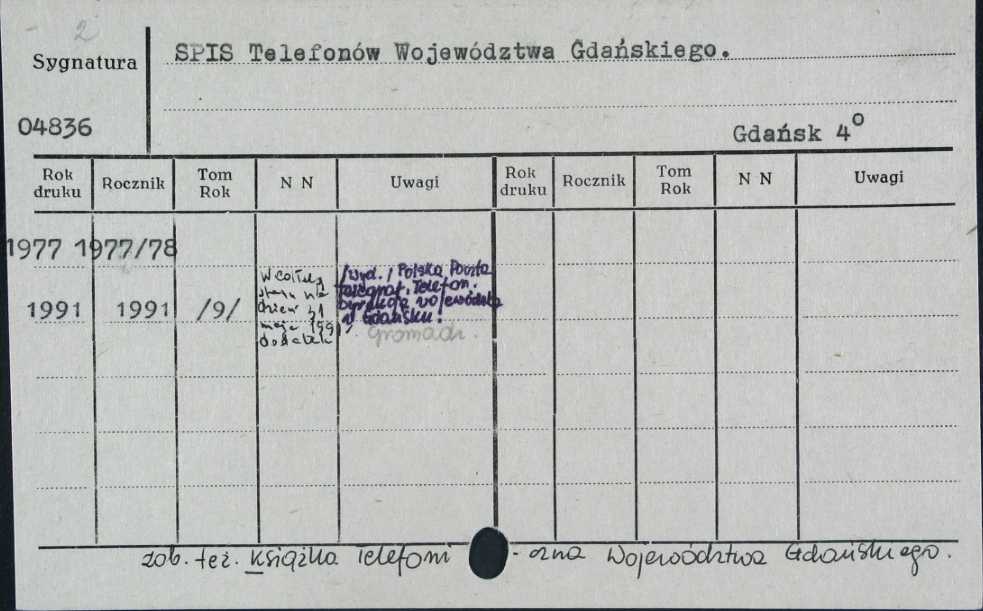 2
SPIS Telefonów Województwa Gdańskiego.
Sygnatura
04836
Gdańsk 4o
Rok druku Rocznik Tom Rok N N Uwagi Rok druku Rocznik Tom Rok N N Uwagi
1977 1977/78
1991 1991 /9/
dzień 31
maja
/Wyd./ Polska Poczta
Telegraf, Telefon.
Dyrekcja Wojewódzka
w Gdańsku.
Gromadz.
zob. też. Książka Telefoni - czna Województwa Gdańskiego.